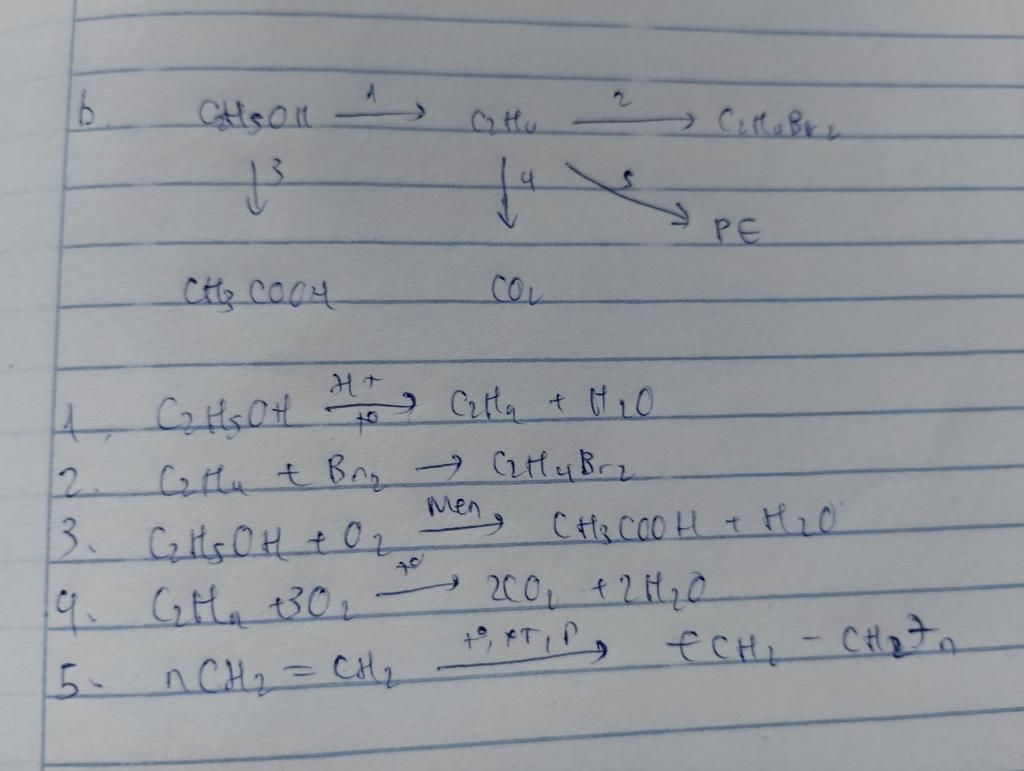 b. C2H5OH —1→ C2H4 —2→ C2H4Br2
↓3 ↓4 ↘5
PE
CH3COOH CO2
1. C2H5OH —H+, t°→ C2H4 + H2O
2. C2H4 + Br2 → C2H4Br2
3. C2H5OH + O2 —Men→ CH3COOH + H2O
4. C2H4 + 3O2 —t°→ 2CO2 + 2H2O
5. nCH2 = CH2 —t°, xT, P→ (CH2 - CH2)n